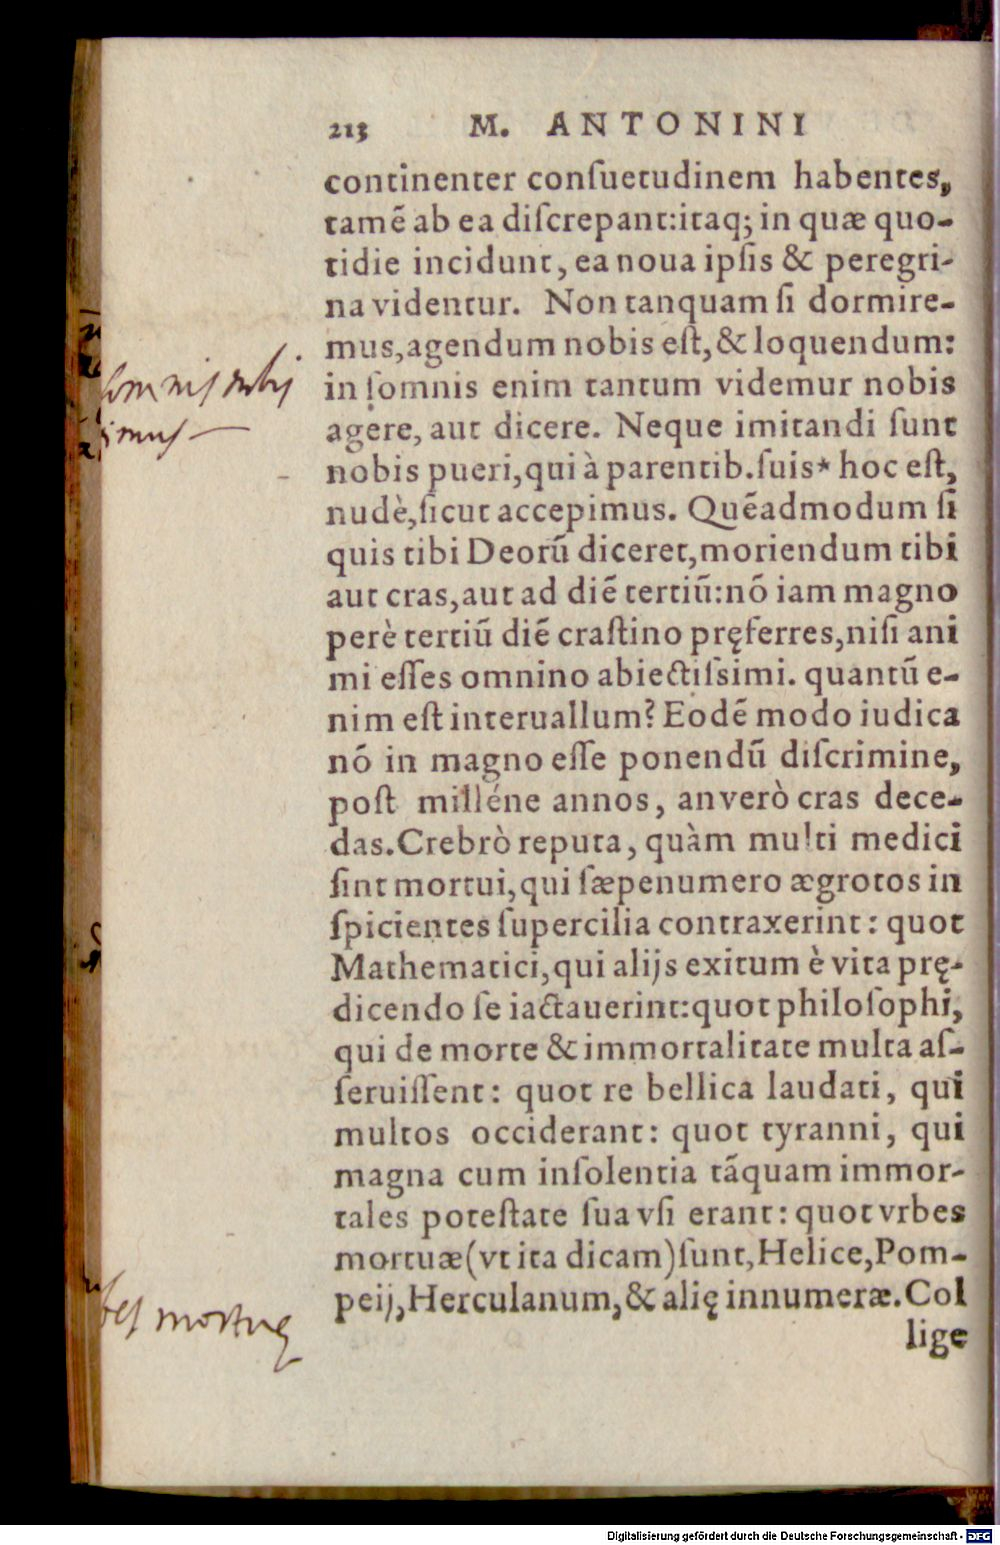 213 M. ANTONINI
continenter conſuetudinem habentes,
tamẽ ab ea diſcrepant:itaq; in quæ quo-
tidie incidunt, ea noua ipſis & peregri-
na videntur. Non tanquam ſi dormire-
mus,agendum nobis eſt,& loquendum:
in ſomnis enim tantum videmur nobis
agere, aut dicere. Neque imitandi ſunt
nobis pueri,qui à parentib.ſuis* hoc eſt,
nudè,ſicut accepimus. Quẽadmodum ſi
quis tibi Deorũ diceret,moriendum tibi
aut cras,aut ad diẽ tertiũ:nõ iam magno
perè tertiũ diẽ craſtino pręferres,niſi ani
mi eſſes omnino abiectiſsimi. quantũ e-
nim eſt interuallum? Eodẽ modo iudica
nõ in magno eſſe ponendũ diſcrimine,
poſt milléne annos, an verò cras dece-
das.Crebrò reputa, quàm multi medici
ſint mortui,qui ſæpenumero ægrotos in
ſpicientes ſupercilia contraxerint: quot
Mathematici,qui alijs exitum è vita prę-
dicendo ſe iactauerint:quot philoſophi,
qui de morte & immortalitate multa aſ-
ſeruiſſent: quot re bellica laudati, qui
multos occiderant: quot tyranni, qui
magna cum inſolentia tãquam immor-
tales poteſtate ſua vſi erant: quot vrbes
mortuæ(vt ita dicam)ſunt,Helice,Pom-
peij,Herculanum,& alię innumeræ.Col
lige
mortuę
Digitalisierung gefördert durch die Deutsche Forschungsgemeinschaft - DFG